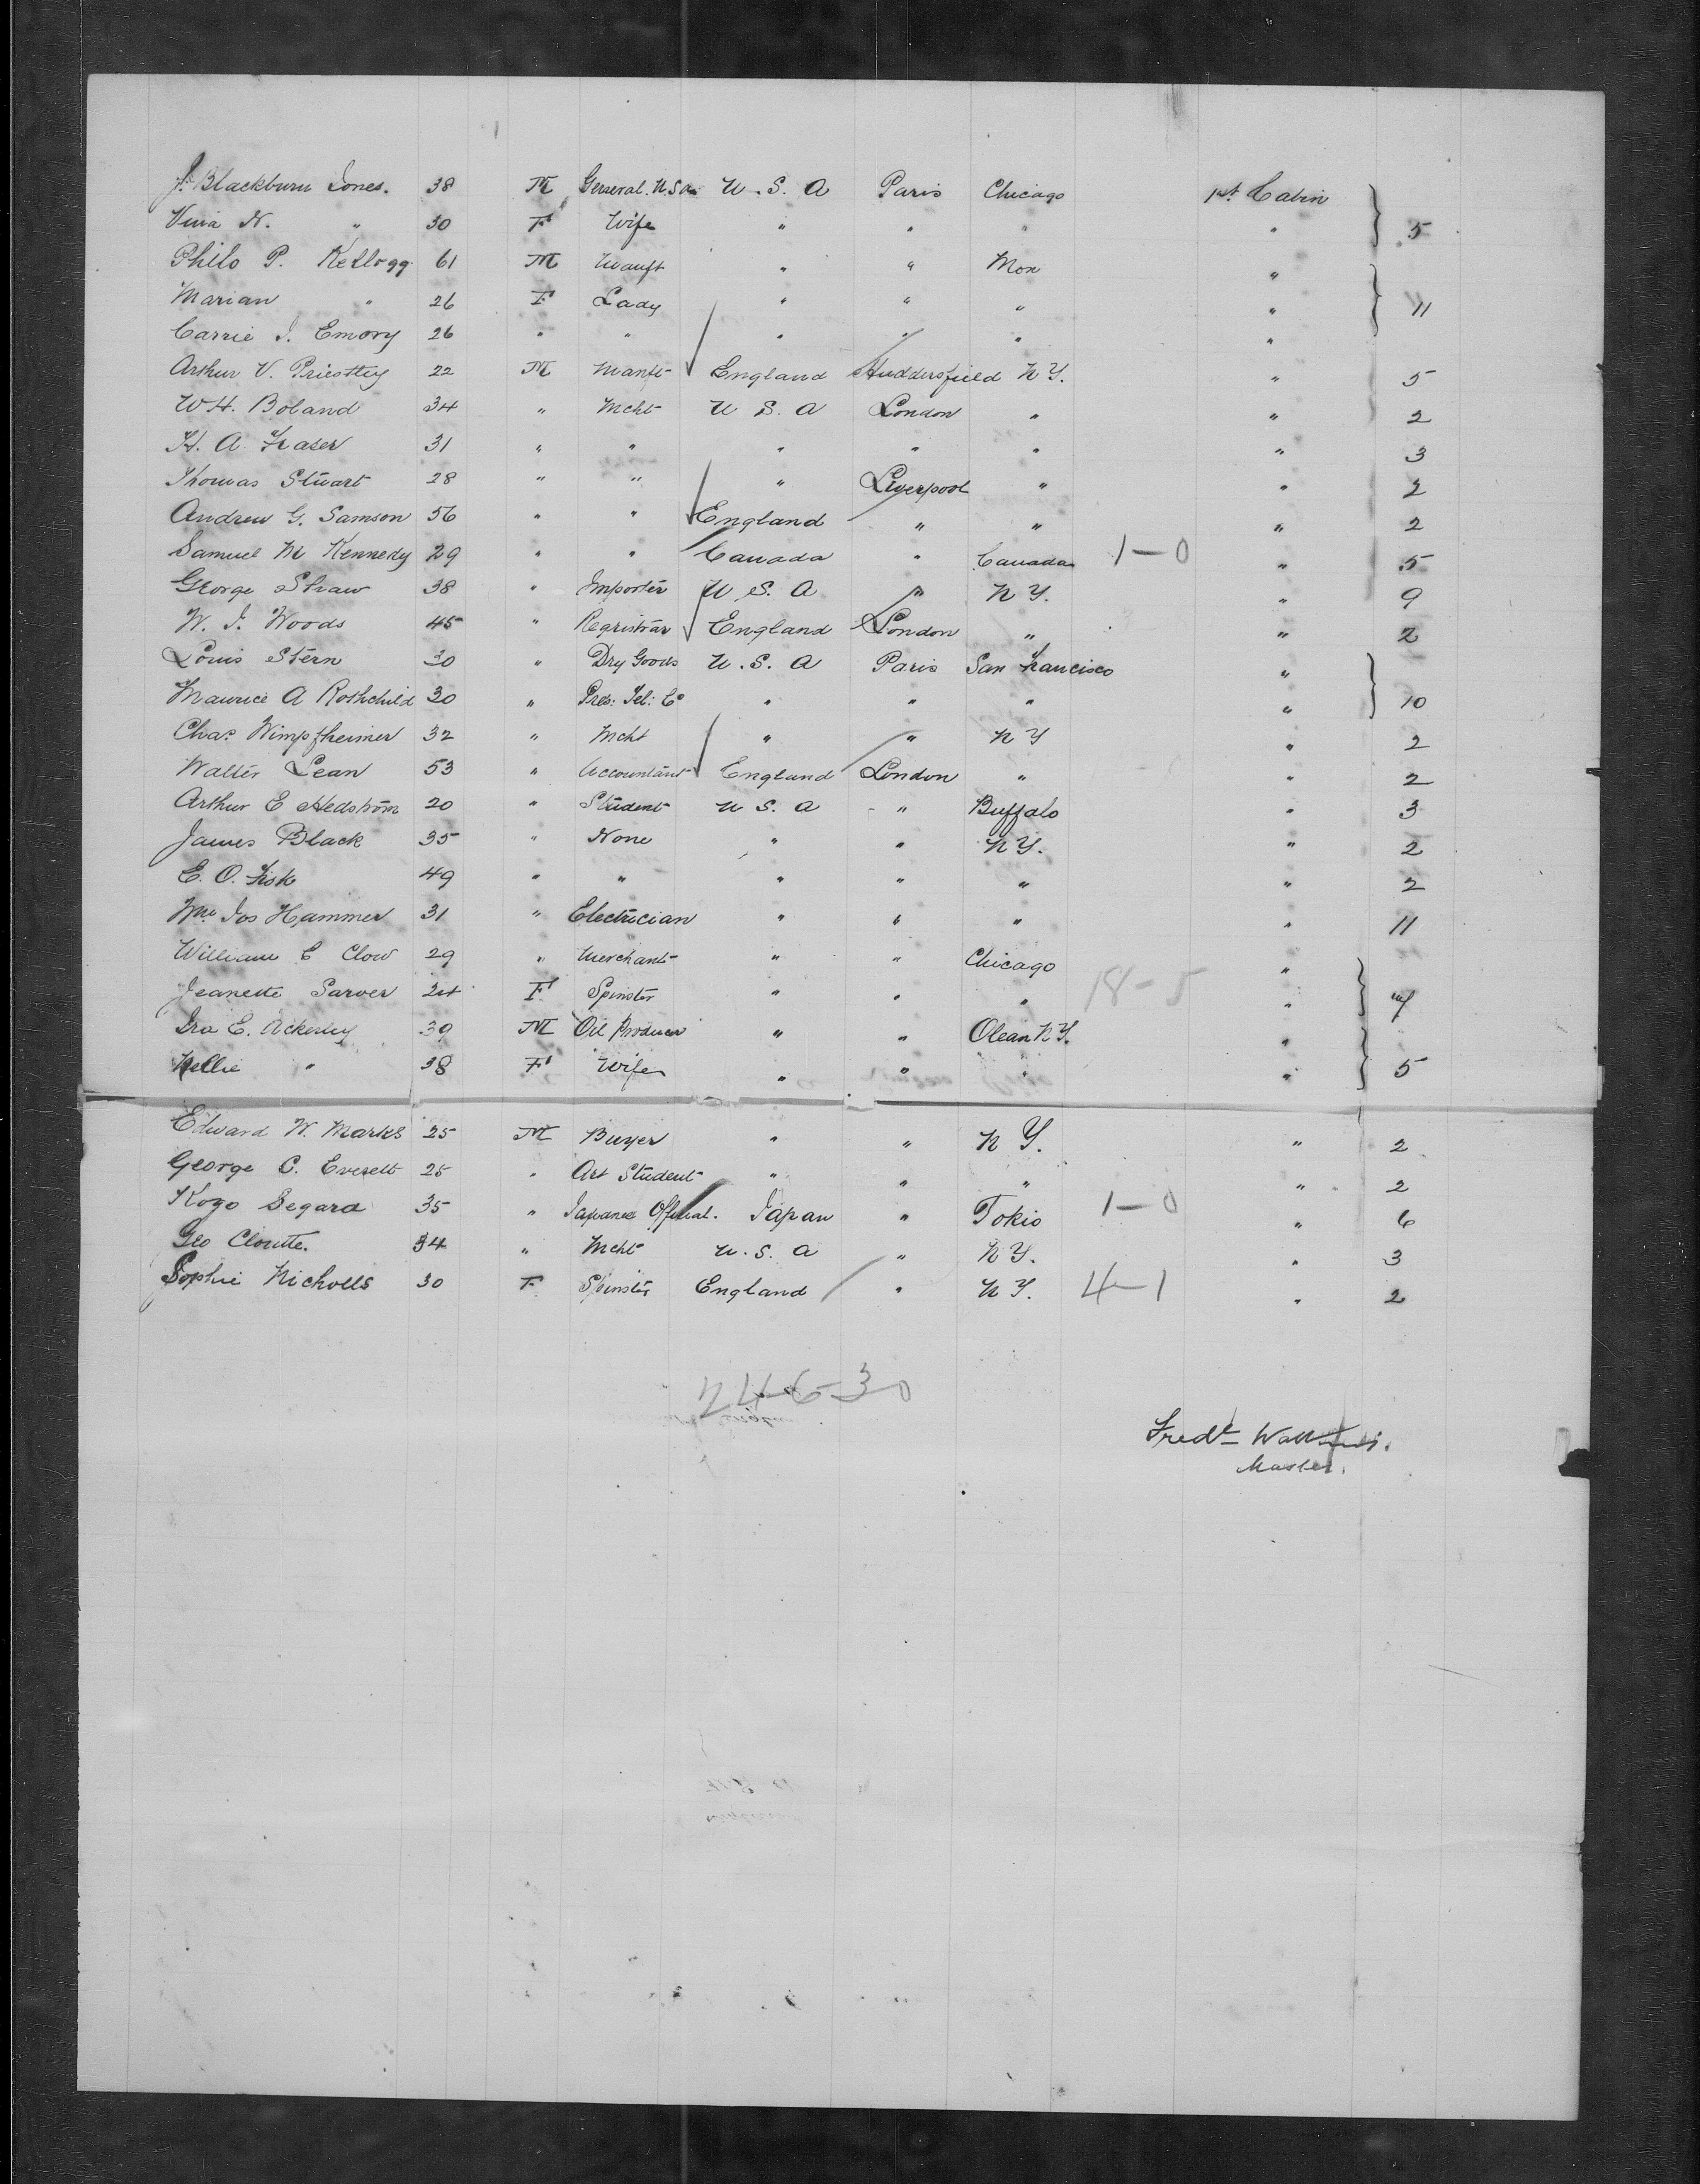 J. Blackburn Jones. 38 M General. U.S.A. U.S.A Paris Chicago 1st Cabin
Vina N. " 30 F Wife " " " " 5
Philo P. Kellogg 61 M Manft " " Mon "
Marian " 26 F Lady " " " " 11
Carrie J. Emory 26 " " " " " "
Arthur V. Priestley 22 M Manft England Huddersfield N Y. " 5
W H. Boland 34 " Mcht U S. A London " " 2
H. A. Fraser 31 " " " " " " 3
Thomas Stuart 28 " " " Liverpool " " 2
Andrew G. Samson 56 " " England " " " 2
Samuel M Kennedy 29 " " Canada " Canada 1-0 " 5
George Shaw 38 " Importer U S. A " N Y. " 9
W. J. Woods 45 " Registrar England London " " 2
Louis Stern 30 " Dry Goods U.S.A Paris San Francisco "
Maurice A Rothchild 30 " Pres: Tel: Co " " " " 10
Chas Wimpfheimer 32 " Mcht " " N Y " 2
Walter Lean 53 " Accountant England London " " 2
Arthur E Hedstrom 20 " Student U S. A " Buffalo " 3
James Black 35 " None " " N Y. " 2
E. O. Fisk 49 " " " " " " 2
Wm Jos Hammer 31 " Electrician " " " " 11
William E Clow 29 " Merchant " " Chicago "
Jeanette Sarver 24 F Spinster " " " 18-5 " 4
Ira E. Ackerley 39 M Oil Producer " " Olean N Y. "
Nellie " 38 F Wife " " " " 5
Edward W. Marks 25 M Buyer " " N Y. " 2
George C. Everett 25 " Art Student " " " " 2
Kogo Segara 35 " Japanese Official. Japan " Tokio 1-0 " 6
Geo Cloutte. 34 " Mcht U.S.A " N Y. " 3
Sophie Nicholls 30 F Spinster England " N Y. 4-1 " 2
24-6-30
Fredk
Master.